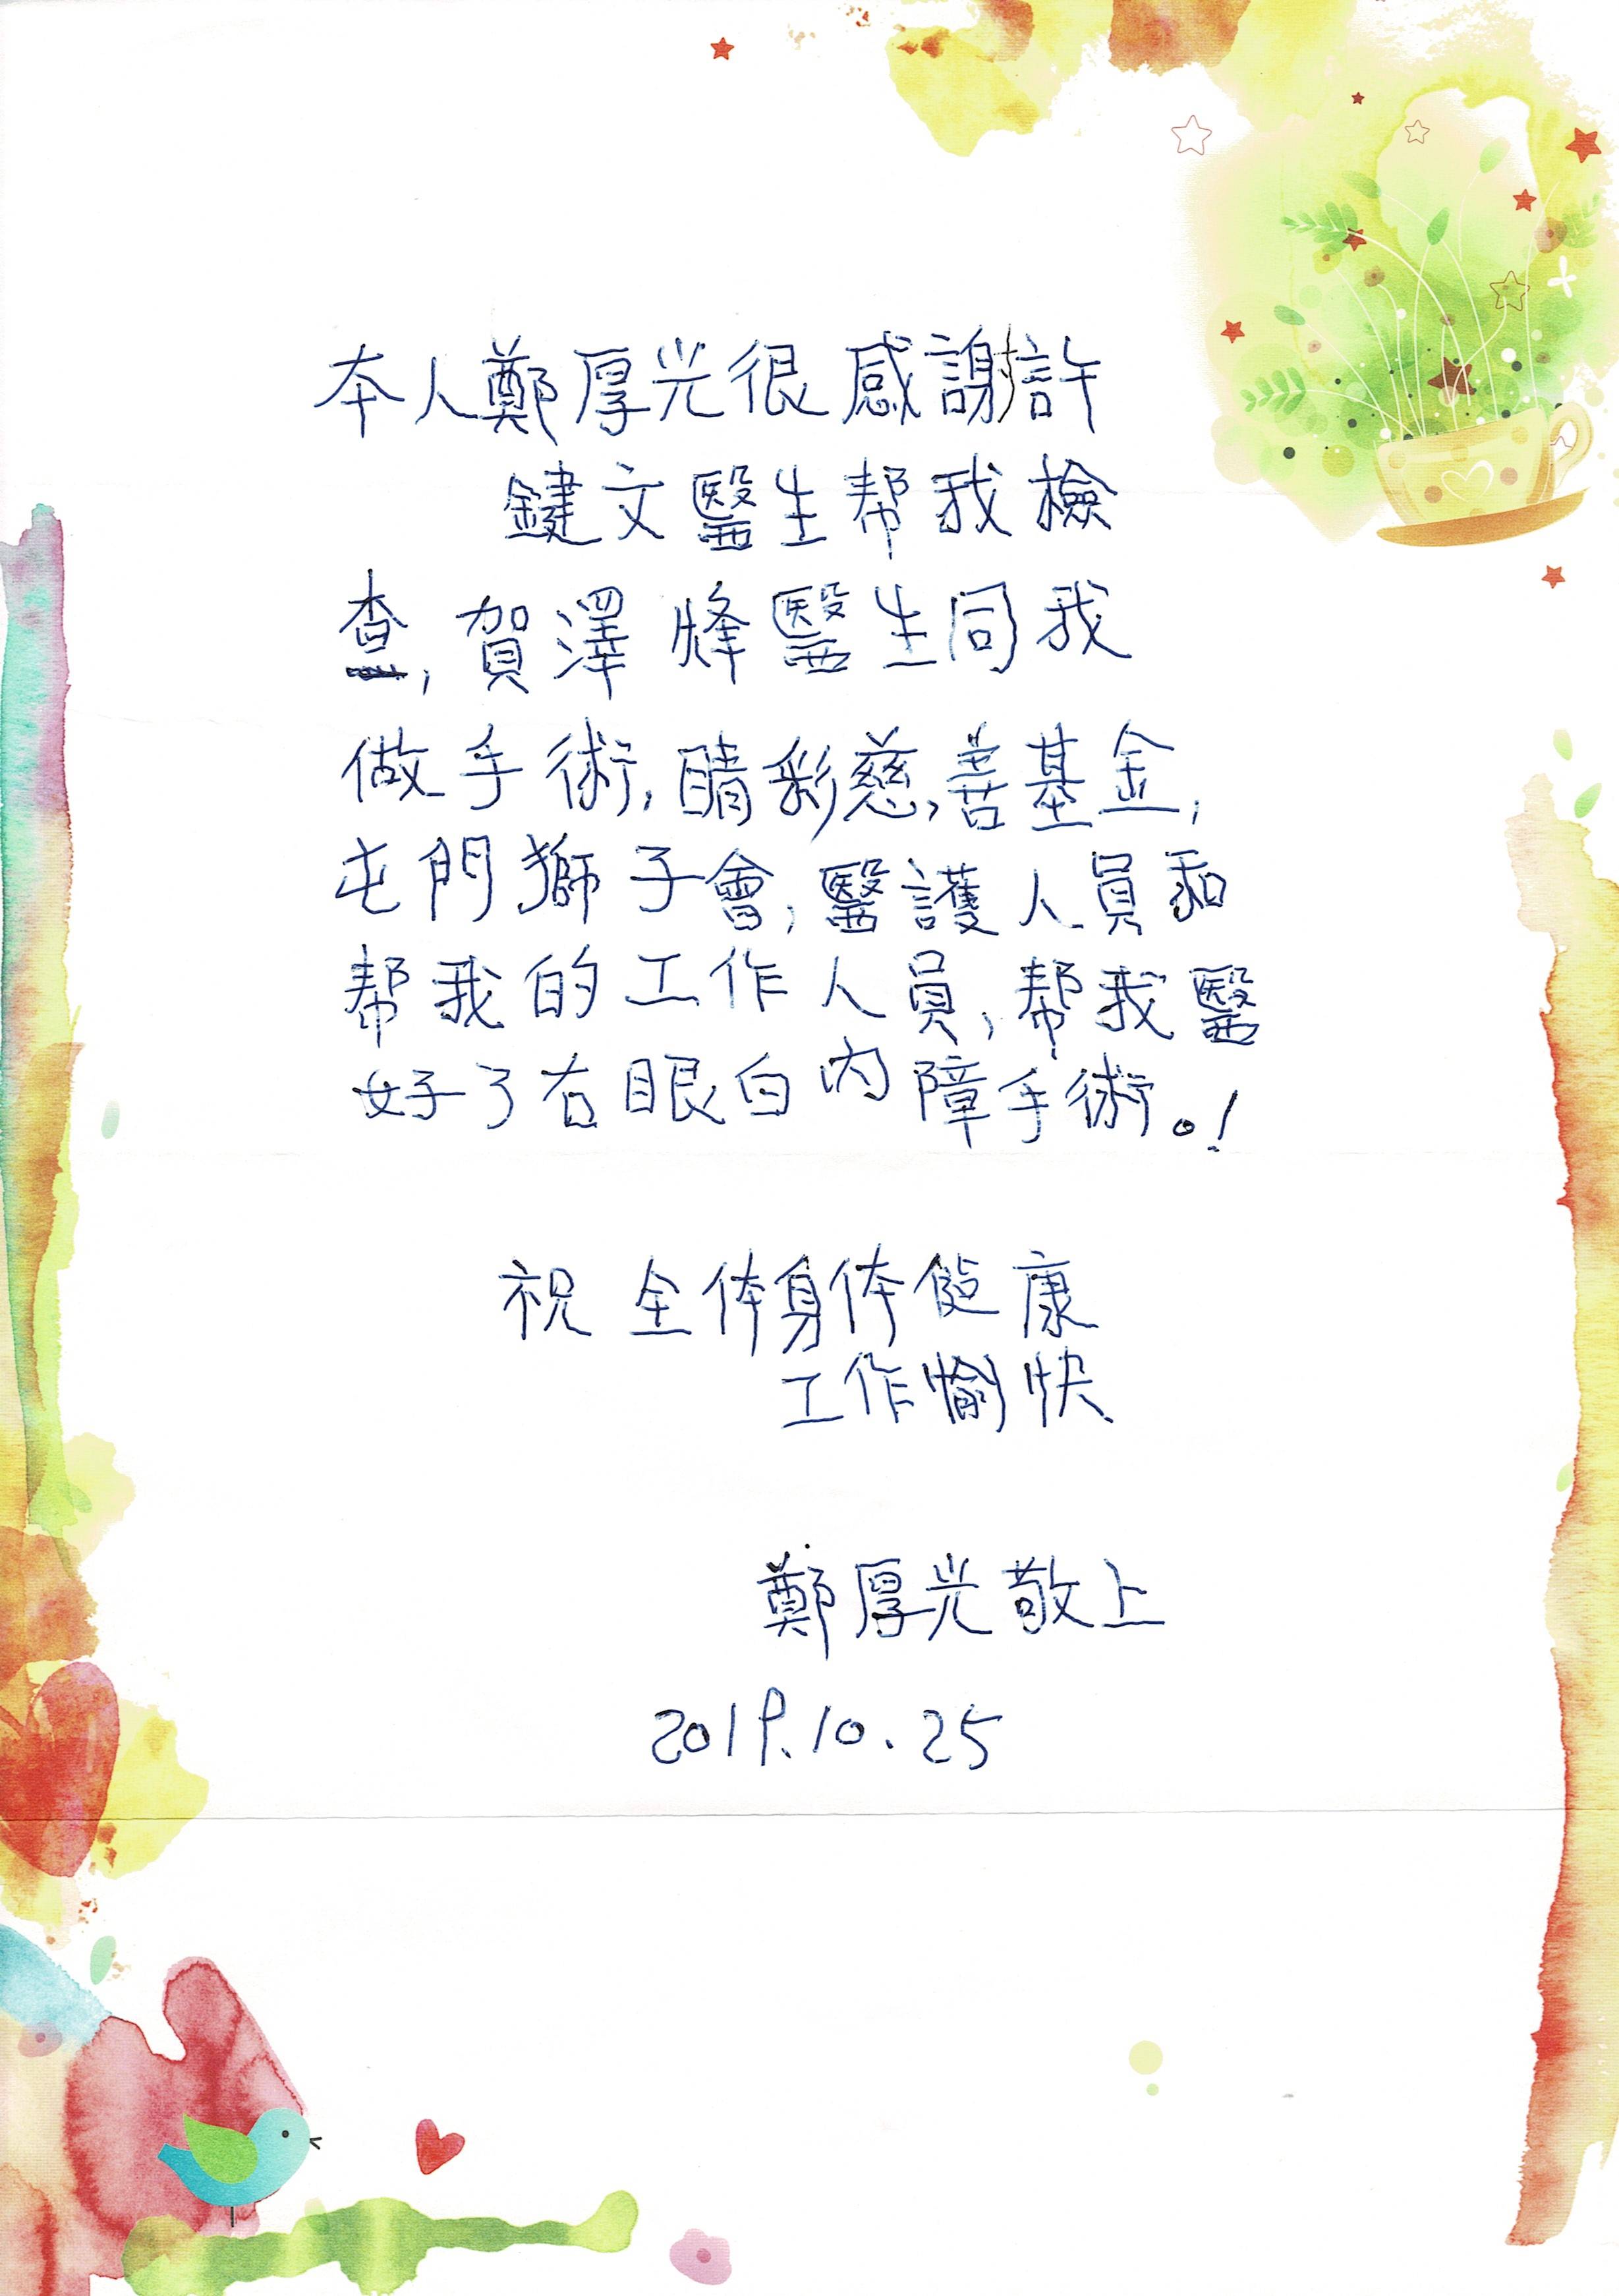 本人鄭厚光很感謝許
鍵文醫生帮我檢
查,賀澤烽醫生同我
做手術,睛彩慈善基金,
屯門獅子會,醫護人員和
帮我的工作人員,帮我醫
好了右眼白內障手術。!
祝 全体身体健康
工作愉快
鄭厚光敬上
2019.10.25